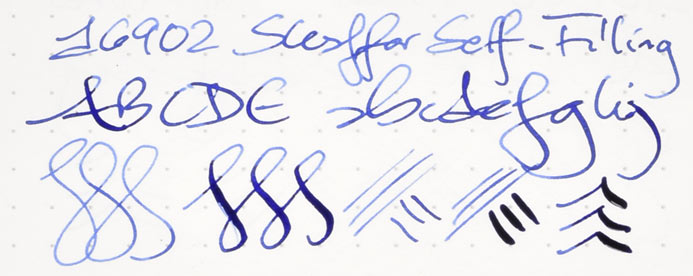 16902 Sheaffer Self-Filling
ABCDE abcdefghij